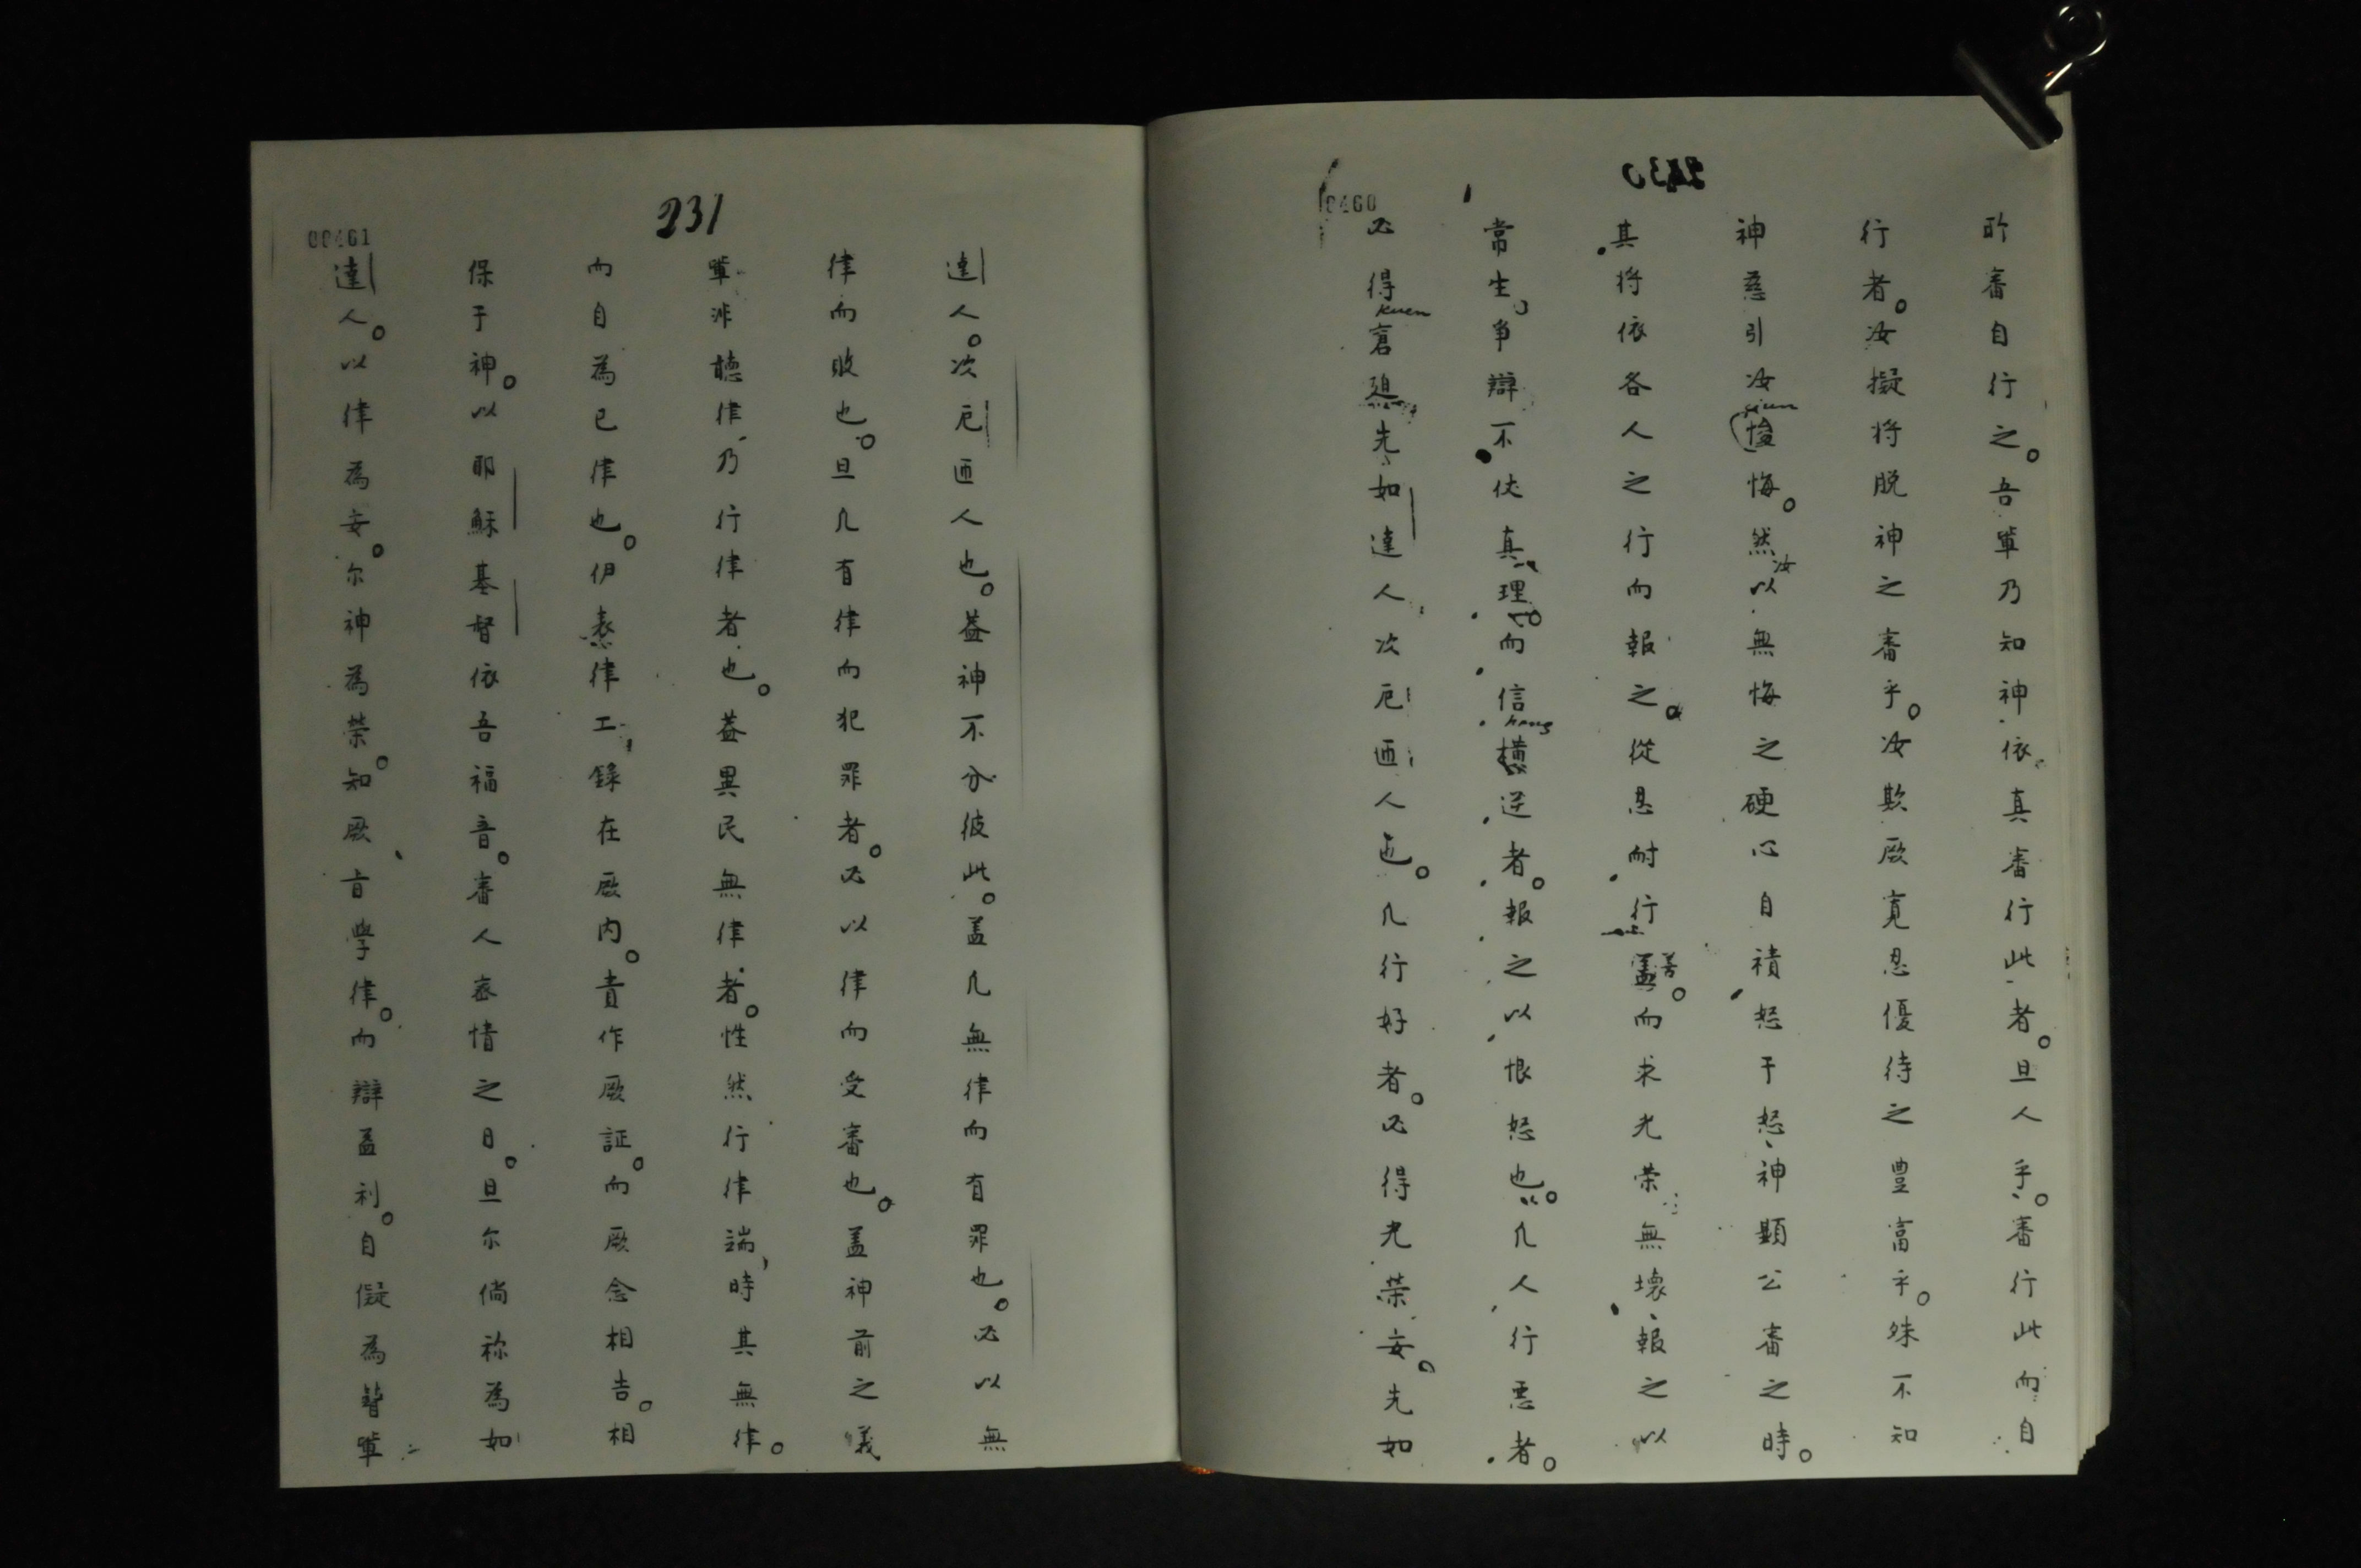 所審自行之。吾軰乃知神依真審行此者。旦人乎。審行此而自
行者。汝擬將脱神之審乎。汝欺厥寬忍優待之豊富乎。殊不知
神慈引汝悛悔。然汝以無悔之硬心自積怒于怒、神顯公審之時。
其将依各人之行而報之。從恳耐行善。而求光荣無壞、報之以
常生。争辯不伏真理。而信横逆者。報之以恨怒也。凢人行悪者。
必得窘先如達人次厄西人也。凢行好者。必得光荣安。先如
00461
231
達人。次厄西人也。盖神不分彼此。盖凢無律而有罪也。必以無
律而敗也。旦凢有律而犯罪者。必以律而受審也。盖神前之義
軰非聽律乃行律者也。盖異民無律者。性然行律端、時其無律。
而自為已律也。伊表律工、錄在厥内。責作厥証。而厥念相告。相
保于神。以耶穌基督依吾福音。審人宻情之日。旦尓倘称為如
達人。以律為安。尓神為荣。知厥旨學律。而辯孟利。自儗為瞽軰